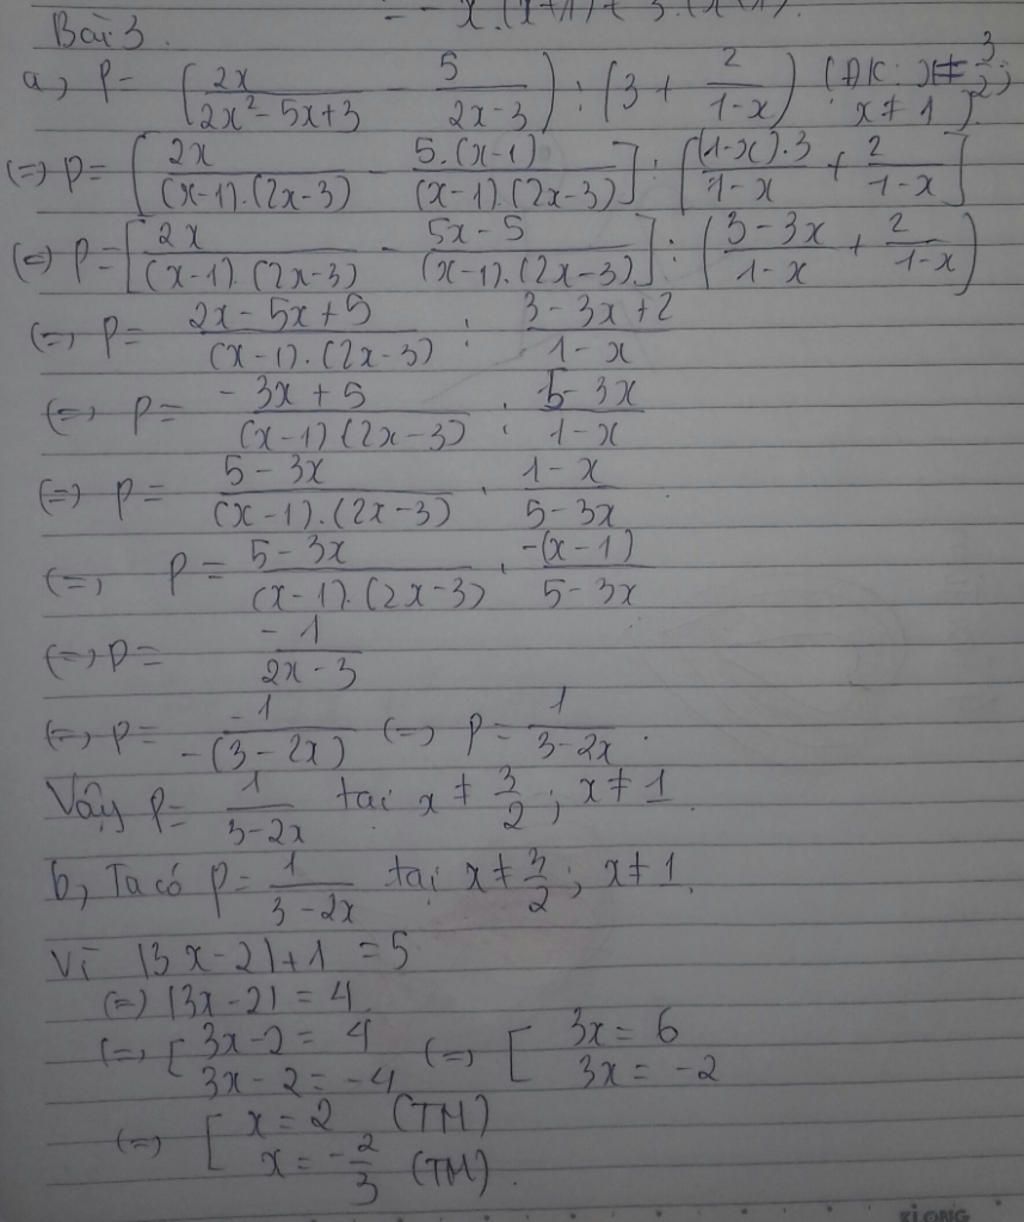 Bài 3.
a, P = (2x/(2x² - 5x + 3) - 5/(2x - 3)) : (3 + 2/(1 - x)) (ĐK: x ≠ 3/2; x ≠ 1)
(=) P = [2x/((x-1).(2x-3)) - 5.(x-1)/((x-1).(2x-3))] : [(1-x).3/(1-x) + 2/(1-x)]
(=) P = [2x/((x-1).(2x-3)) - (5x-5)/((x-1).(2x-3))] : ((3-3x)/(1-x) + 2/(1-x))
(=) P = (2x - 5x + 5)/((x-1).(2x-3)) : (3 - 3x + 2)/(1 - x)
(=) P = (-3x + 5)/((x-1)(2x-3)) : (5 - 3x)/(1 - x)
(=) P = (5 - 3x)/((x-1).(2x-3)) . (1 - x)/(5 - 3x)
(=) P = (5 - 3x)/((x-1).(2x-3)) . -(x-1)/(5 - 3x)
(=) P = -1/(2x - 3)
(=) P = -1/(-(3 - 2x)) (=) P = 1/(3 - 2x).
Vậy P = 1/(3 - 2x) tại x ≠ 3/2; x ≠ 1.
b, Ta có P = 1/(3 - 2x) tại x ≠ 3/2; x ≠ 1.
Vì |3x - 2| + 1 = 5
(=) |3x - 2| = 4
(=) [ 3x - 2 = 4 (=) [ 3x = 6
3x - 2 = -4 3x = -2
(=) [ x = 2 (TM)
x = -2/3 (TM).